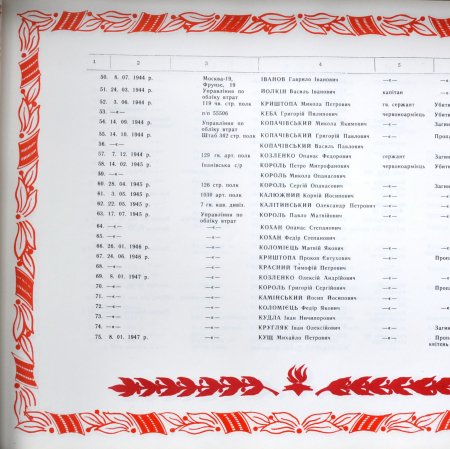 1 2 3 4 5
50. 8. 07. 1944 р. Москва-19, ІВАНОВ Гаврило Іванович —«— —«—
Фрунзе, 19
51. 24. 03. 1944 р. Управління по ЙОЛКІН Василь Іванович капітан —«—
обліку втрат
52. 3. 06. 1944 р. 119 гв. стр. полк КРИШТОПА Микола Петрович гв. сержант Убит
53. —«— п/п 55506 КЕБА Григорій Пилипович червоноармієць Убит
54. 14. 09. 1944 р. Управління по КОПАЧІВСЬКИЙ Микола Якимович —«— Заги
обліку втрат
55. 14. 10. 1944 р. Штаб 302 стр. полк КОПАЧІВСЬКИЙ Григорій Павлович —«— Проп
56. —«— КОПАЧІВСЬКИЙ Василь Павлович
57. 7. 12. 1944 р. 129 гв. арт. полк КОЗЛЕНКО Опанас Федорович сержант Заги
58. 14. 02. 1945 р. Іванівська с/р КОРОЛЬ Петро Митрофанович червоноармієць Убит
59. —«— КОРОЛЬ Микола Опанасович
60. 28. 04. 1945 р. 126 стр. полк КОРОЛЬ Сергій Опанасович —«— Заги
61. 3. 05. 1945 р. 1030 арт. полк КАЛЮЖНИЙ Корній Йосипович —«— —«—
62. 22. 05. 1945 р. 7 гв. кав. дивіз. КАЛІТИНСЬКИЙ Олександр Петрович —«— —«—
63. 17. 07. 1945 р. Управління по КОРОЛЬ Павло Матвійович —«—
обліку втрат
64. —«— —«— КОХАН Опанас Степанович
65. —«— —«— КОХАН Федір Степанович
66. 26. 01. 1946 р. —«— КОЛОМІЄЦЬ Матвій Якович —«— —«—
67. 24. 06. 1946 р. —«— КРИШТОПА Прокоп Євтухович —«— Проп
68. —«— —«— КРАСНИЙ Тимофій Петрович
69. 8. 01. 1947 р. —«— КОЗЛЕНКО Олексій Андрійович —«—
70. —«— —«— КОРОЛЬ Григорій Сергійович —«— Проп
71. —«— —«— КАМІНСЬКИЙ Йосип Йосипович
72. —«— —«— КОЛОМІЄЦЬ Федір Якович —«— —«—
73. —«— —«— КУДЛА Іван Ничипорович
74. —«— —«— КРУГЛЯК Іван Олексійович —«— Заги
75. 8. 01. 1947 р. —«— КУЩ Михайло Петрович —«— Проп
квітень